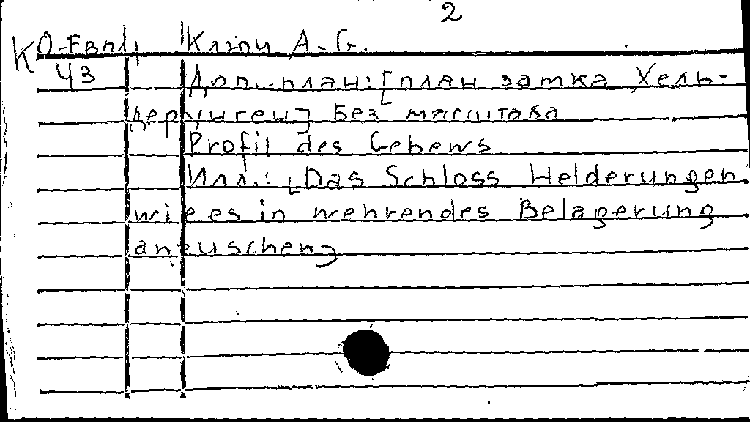 2
К О-Евп Ключ A-G.
43 Доп. план: [план замка Хель-
дерунген] Без масштаба
Profil des Gebews
Илл.: [Das Schloss Helderungen
wie es in wehrendes Belagerung
anzuschen]